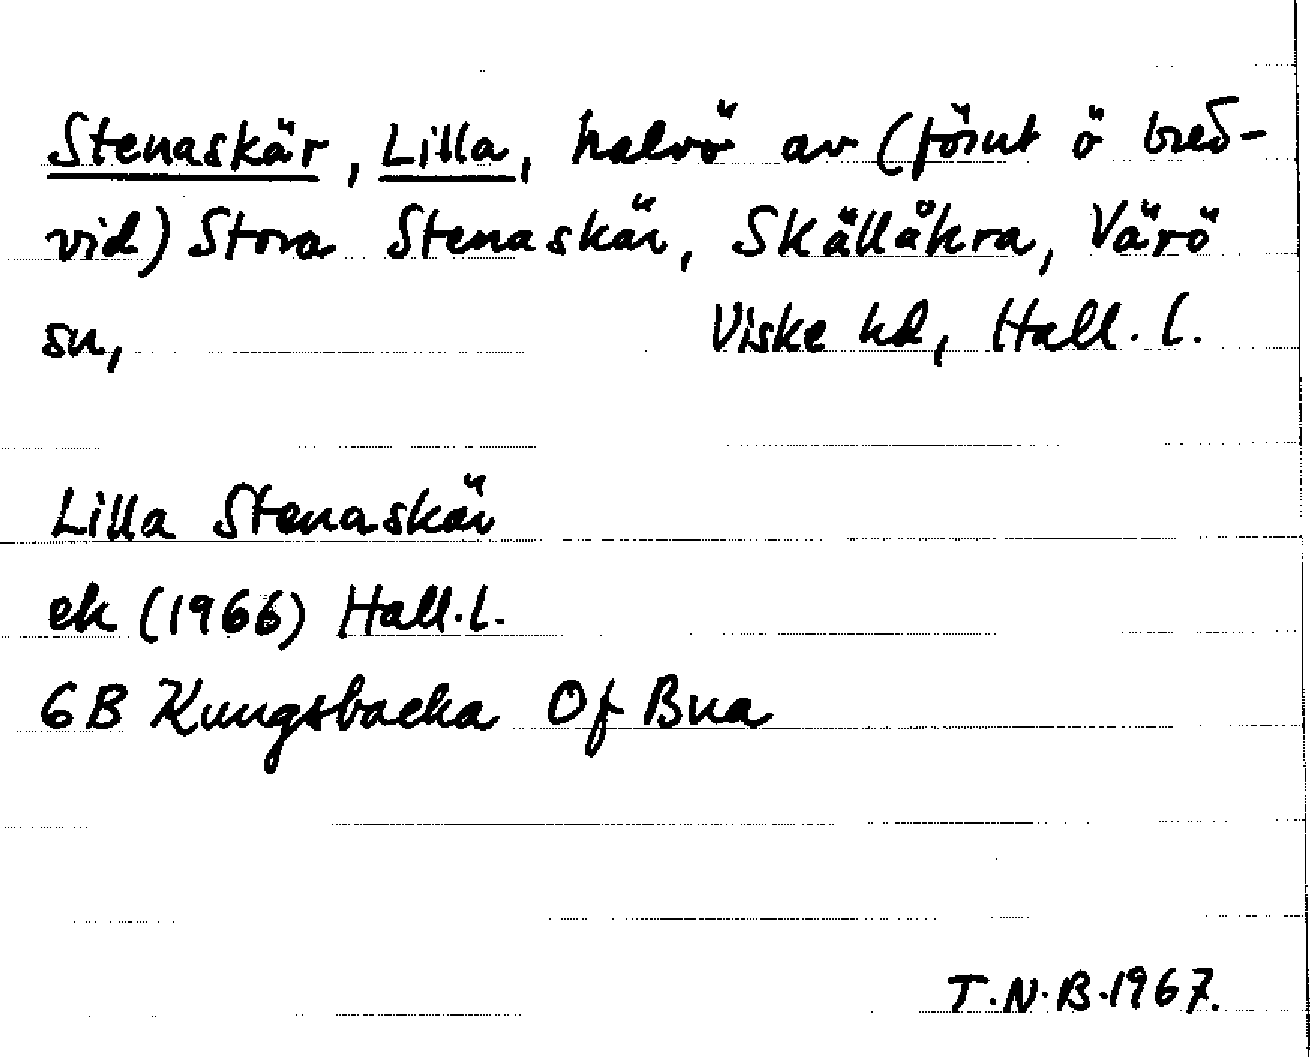 Stenaskär, Lilla, halvö av (förut ö bred-
vid) Stora Stenaskär, Skällåkra, Värö
sn, Viske hd, Hall. l.
Lilla Stenaskär
ek (1966) Hall. l.
6B Kungsbacka Of Bua
T.N.B. 1967.